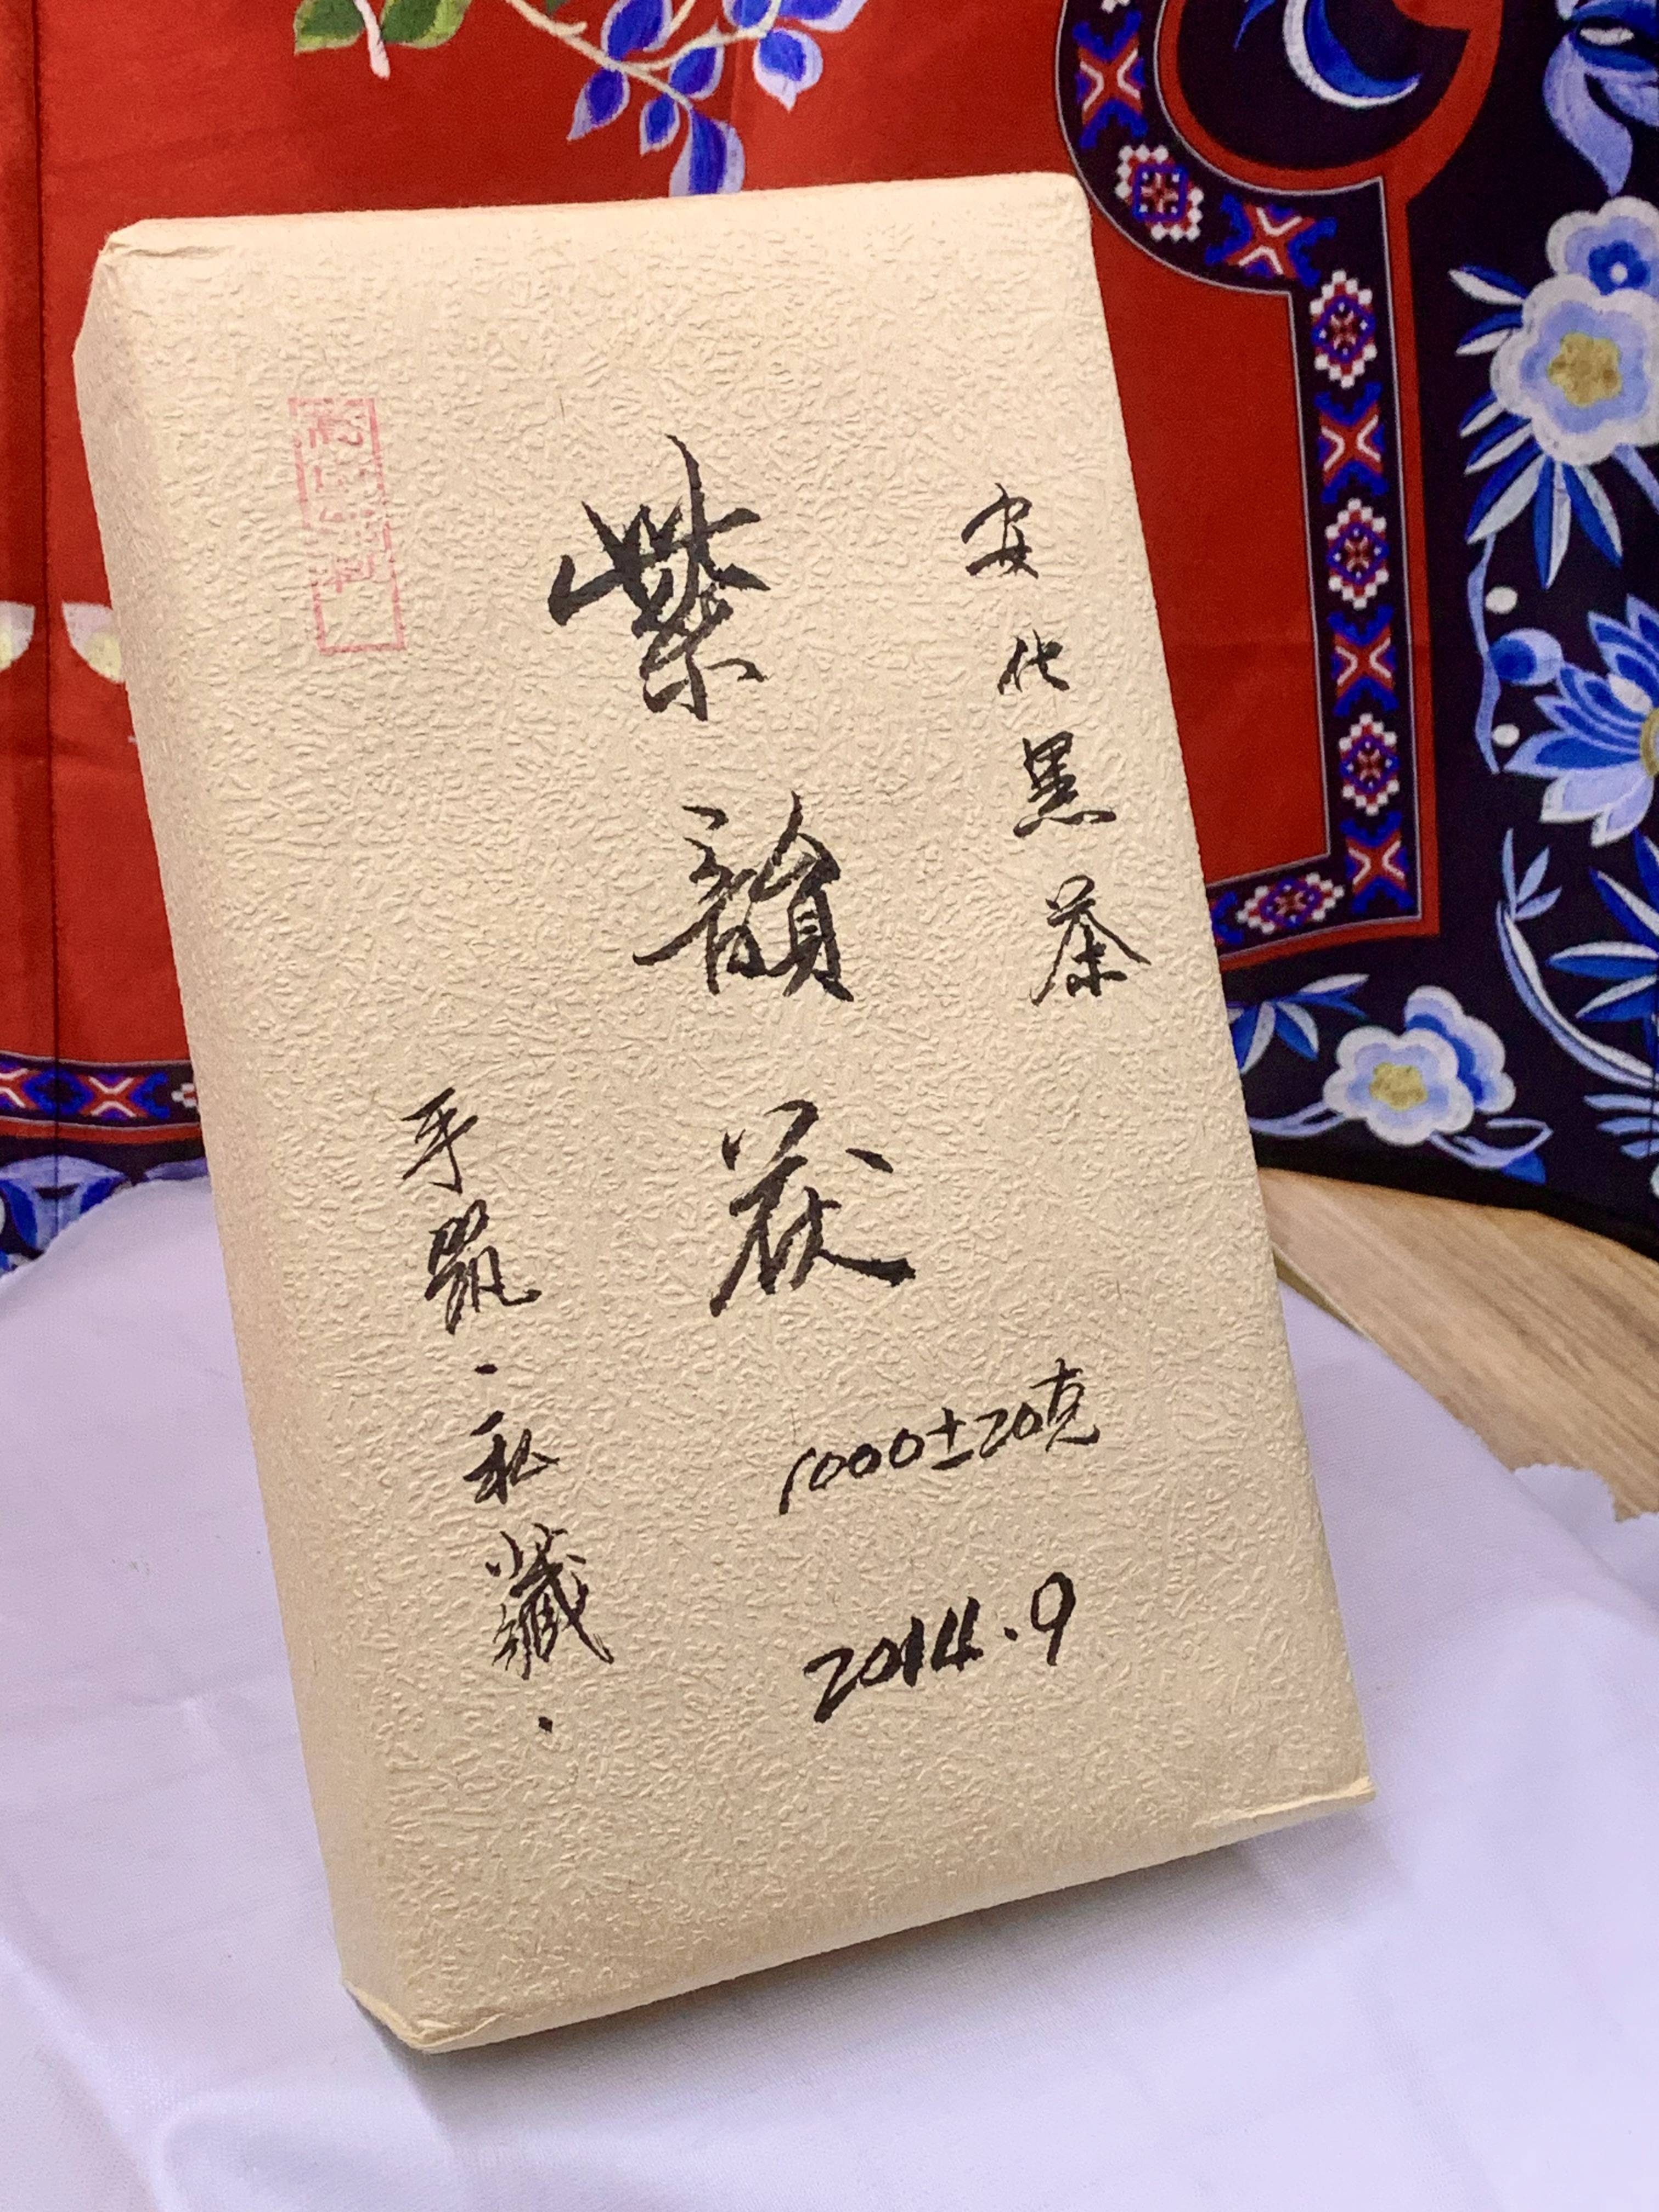 安化黑茶
紫韻茯
1000±20克
2014.9
手筑·私藏·